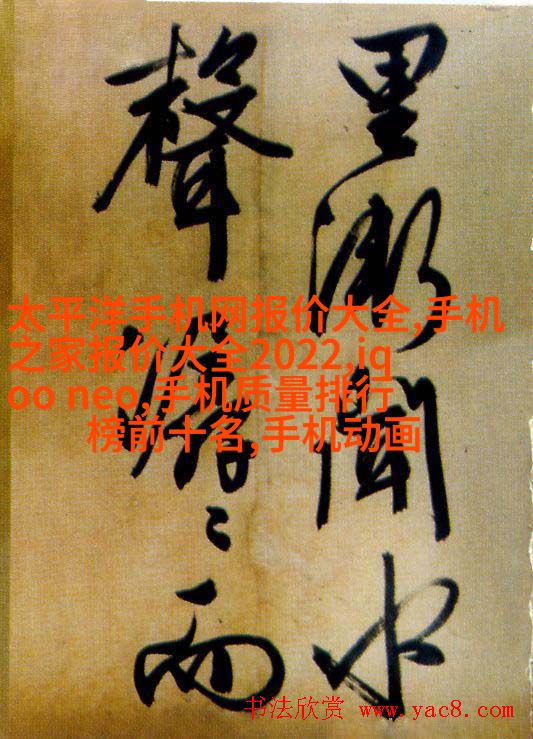 里渐闻水
声潺潺而
太平洋手机网报价大全,手机
之家报价大全2022,iq
oo neo,手机质量排行
榜前十名,手机动画
书法欣赏 www.yac8.com